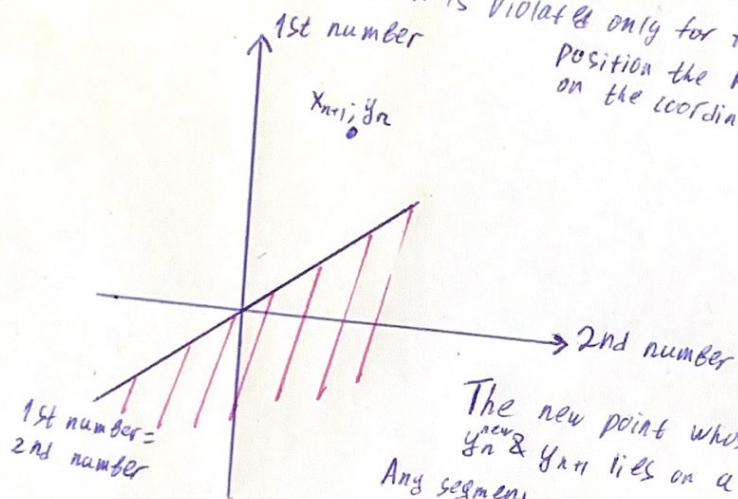 is violated only for
position the
on the
1st number
x_{n+1}; y_n
2nd number
1st number =
2nd number
The new point
y_n^{new} & y_{n+1} lies on a
Any